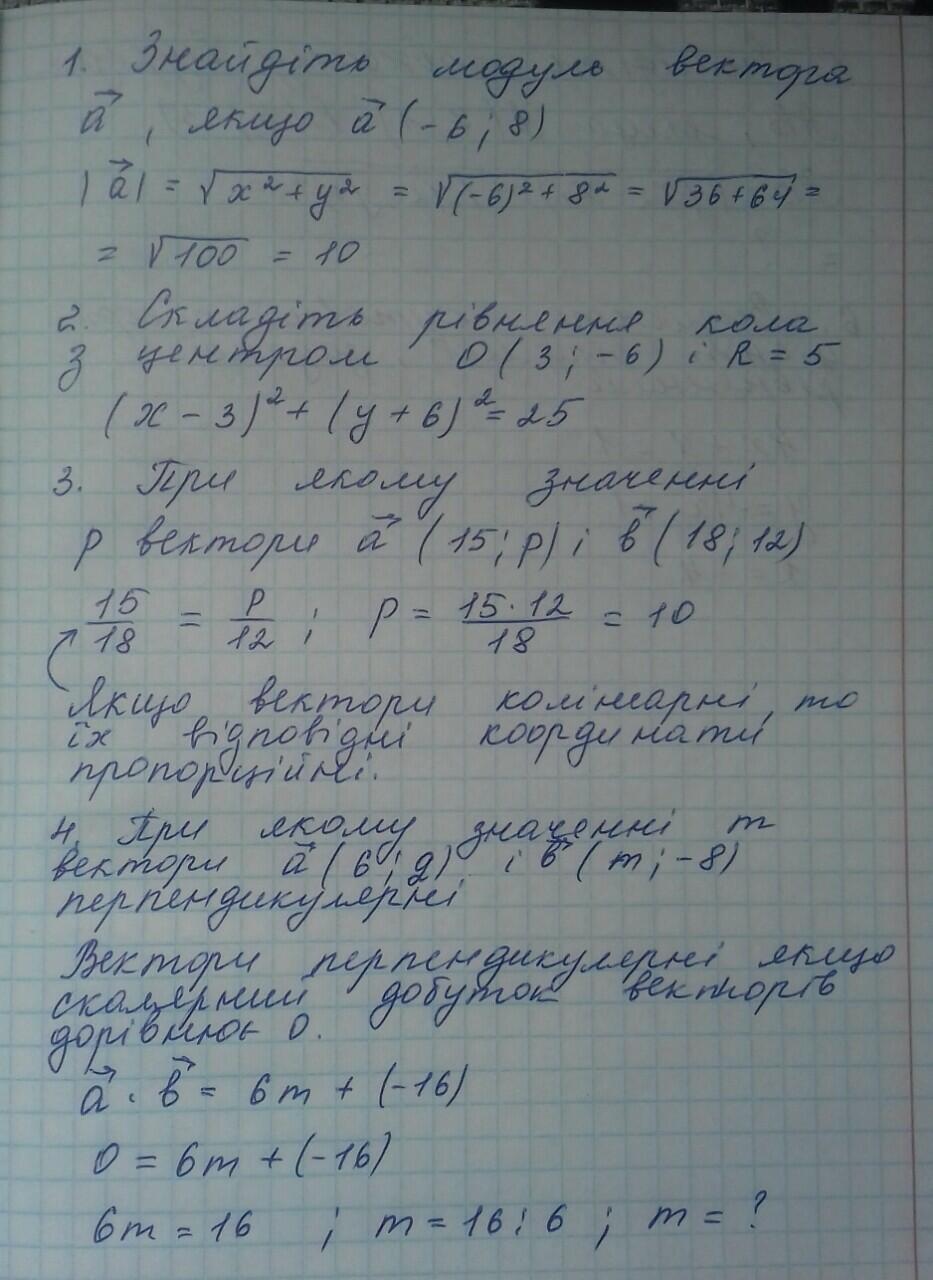 1. Знайдіть модуль вектора
a⃗, якщо a⃗ (-6; 8)
|a⃗| = √(x² + y²) = √((-6)² + 8²) = √(36+64) =
= √100 = 10
2. Складіть рівняння кола
з центром O(3; -6) і R = 5
(x - 3)² + (y + 6)² = 25
3. При якому значенні
p вектори a⃗ (15; p) і b⃗ (18; 12)
15/18 = p/12 ; p = 15·12/18 = 10
Якщо вектори колінарні, то
їх відповідні координати
пропорційні.
4. При якому значенні m
вектори a⃗ (6; 2) і b⃗ (m; -8)
перпендикулярні
Вектори перпендикулярні якщо
скалярний добуток векторів
дорівнює 0.
a⃗ · b⃗ = 6m + (-16)
0 = 6m + (-16)
6m = 16 ; m = 16 : 6 ; m = ?